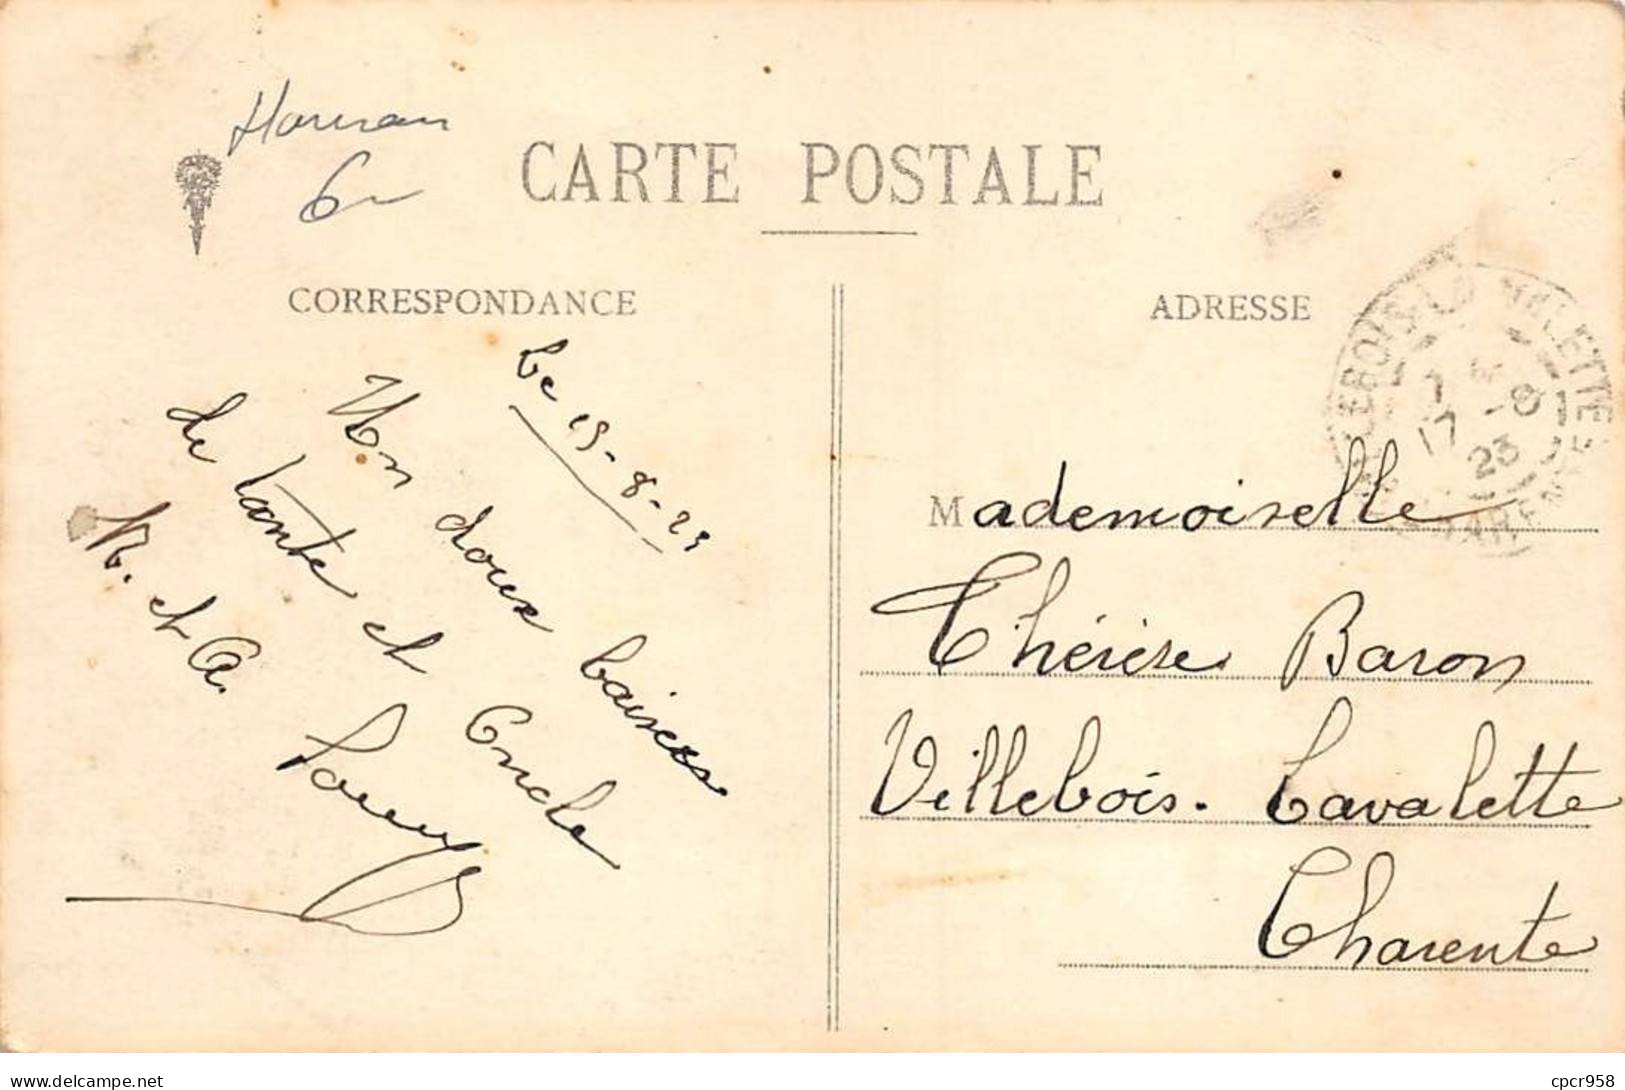 6
CARTE POSTALE
CORRESPONDANCE
Le 15-8-23
Mon doux baisers
de tante et Oncle
R. et A.
ADRESSE
VILLEBOIS-LA VALETTE
17 -8
23
CHARENTE
Mademoiselle
Thérèse Baron
Villebois. Lavalette
Charente
delcampe.net
cpcr958